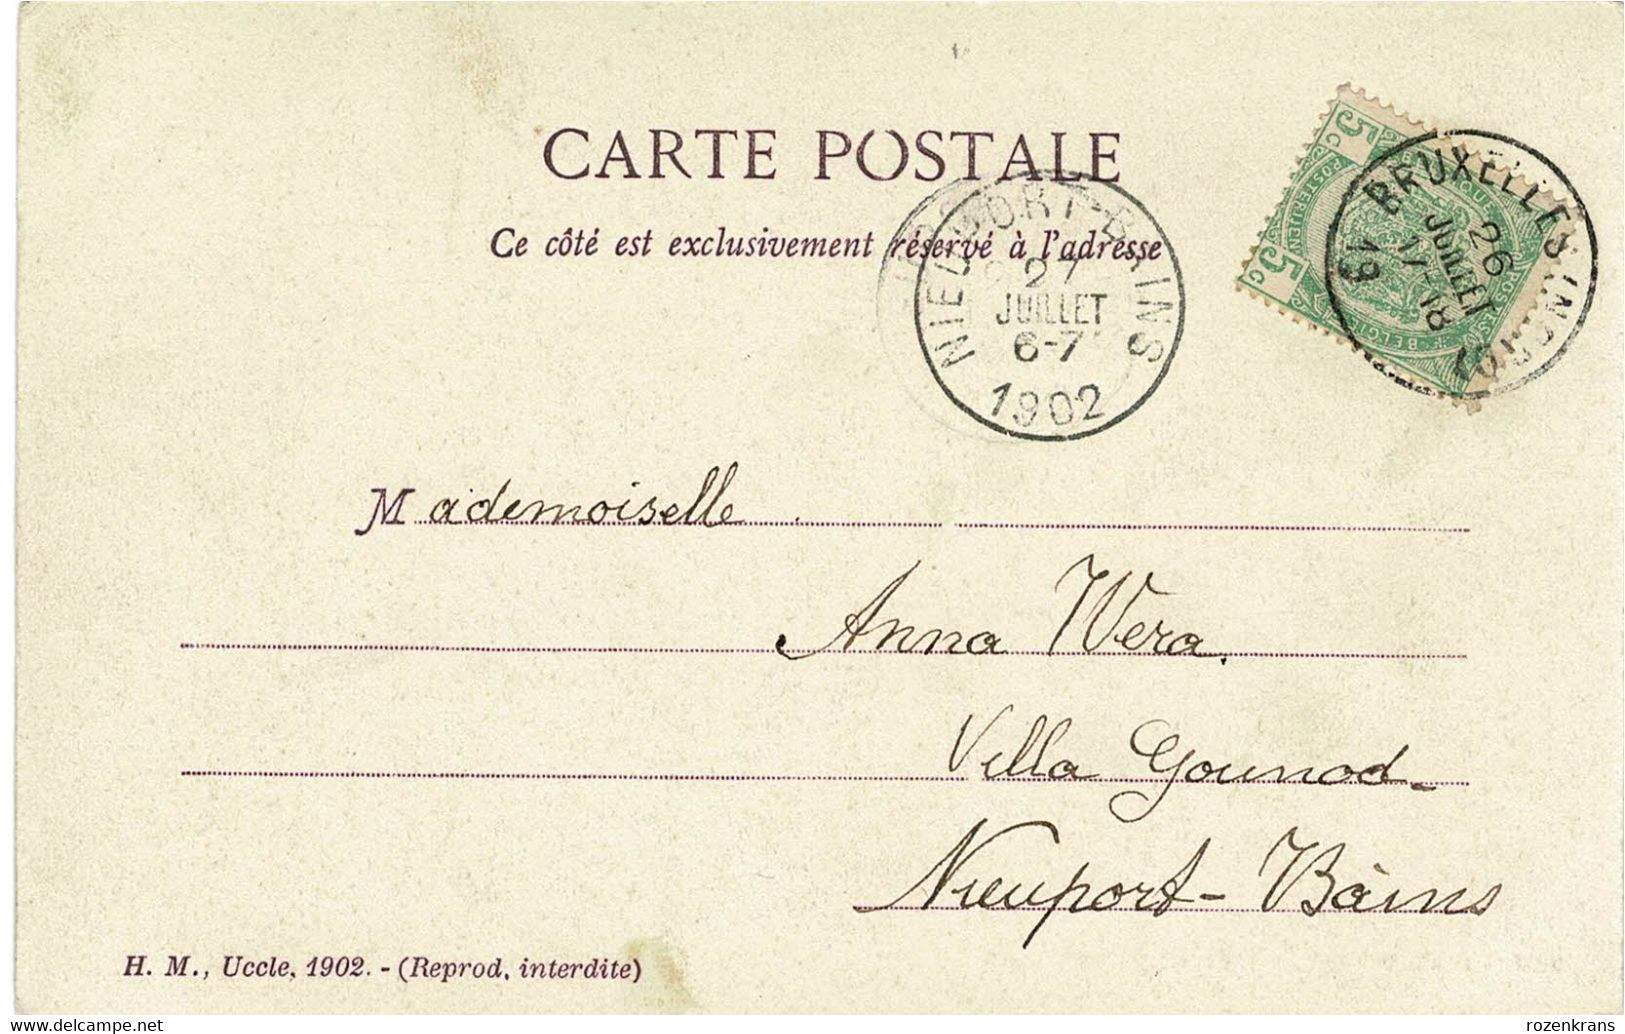 CARTE POSTALE
Ce côté est exclusivement réservé à l'adresse
5 c
5 c
BRUXELLES
26
JUILLET
17-18
NIEUPORT-BAINS
27
JUILLET
6-7
1902
Mademoiselle
Anna Wera.
Villa Gounod-
Nieuport-Bains
H. M., Uccle, 1902. - (Reprod, interdite)
www.delcampe.net
rozenkrans